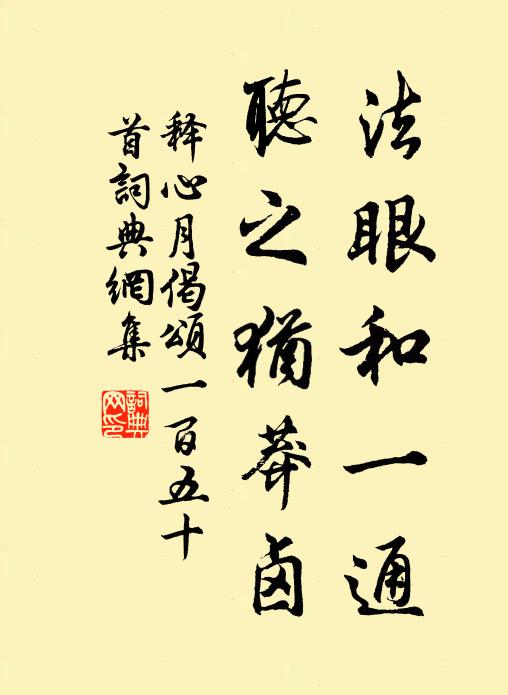 法眼和一通
聽之猶莽鹵
释心月偈頌一百五十
首詞典網集
詞典網印